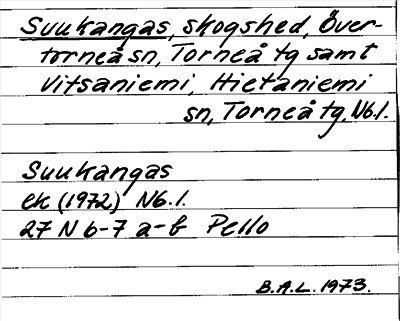 Suukangas, skogshed, Över-
torneå sn, Torneå tg samt
Vitsaniemi, Hietaniemi
sn, Torneå tg, Nb.l.
Suukangas
ek (1972) Nb.l.
27 N 6-7 a-b Pello
B.A.L. 1973.